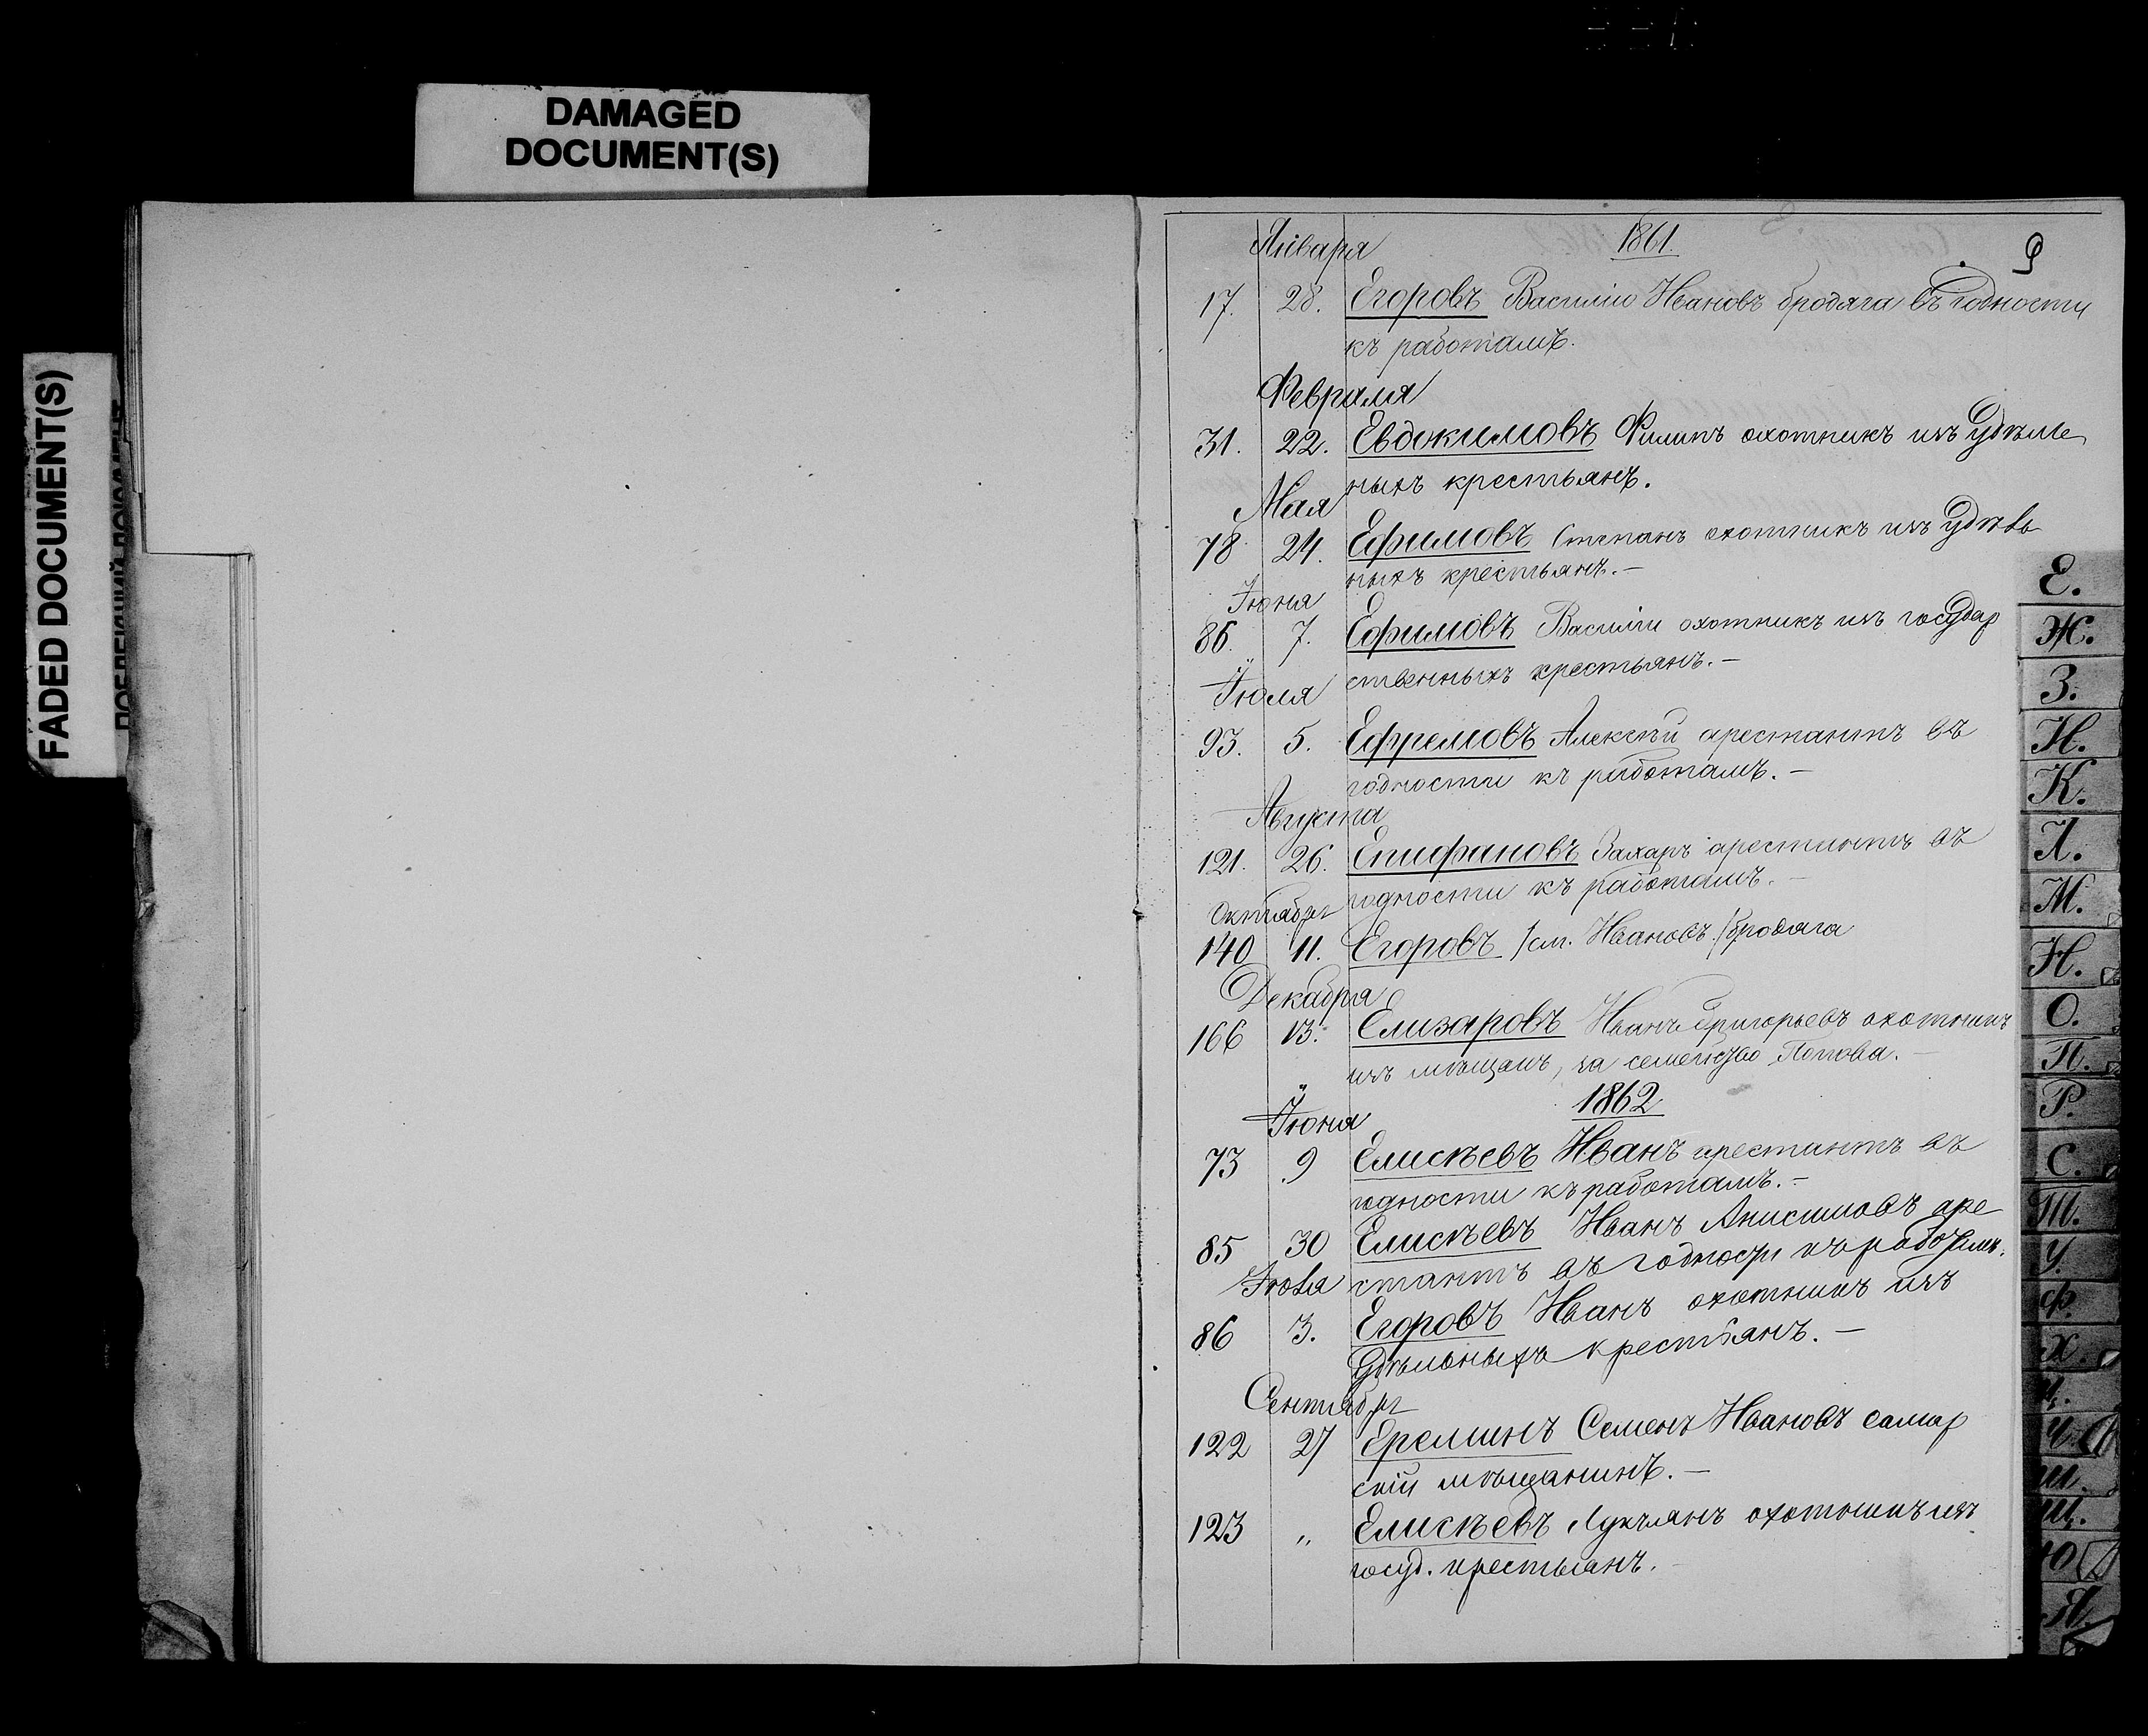 DAMAGED
DOCUMENT(S)
FADED DOCUMENT(S)
1861.
9
Января
17. 28. Егоровъ Василiй Ивановъ бродяга въ годности
къ работамъ.
Февраля
31. 22. Евдокимовъ Филипъ охотникъ изъ Удѣль
ныхъ крестьянъ.
Мая
78 24. Ефимовъ Степанъ охотникъ изъ Удѣль
ныхъ крестьянъ.—
Iюня
86. 7. Ефимовъ Василiй охотникъ изъ государ
ственныхъ крестьянъ.—
Iюля
93. 5. Ефремовъ Алексѣй арестантъ въ
годности къ работамъ.—
Августа
121. 26. Епифановъ Захаръ арестантъ въ
годности къ работамъ.—
Октября
140 11. Егоровъ /см. Ивановъ/ бродяга
Декабря
166 13. Елизаровъ Иванъ Григорьевъ охотникъ
изъ мѣщанъ, за семейство Попова.—
1862
Iюня
73 9 Елисѣевъ Иванъ арестантъ въ
годности къ работамъ.—
85 30 Елисѣевъ Иванъ Анисимовъ аре
стантъ въ годности къ работамъ.
Iюля
86 3. Егоровъ Иванъ охотникъ изъ
Удѣльныхъ крестьянъ.—
Сентября
122 27 Ереминъ Семенъ Ивановъ самар
скiй мѣщанинъ.—
123 „ Елисѣевъ Лукъянъ охотникъ изъ
госуд. крестьянъ.
Е.
Ж.
З.
И.
К.
Л.
М.
Н.
О.
П.
Р.
С.
Т.
У.
Ф.
Х.
Ц.
Ч.
Ш.
Щ.
Ю.
Я.